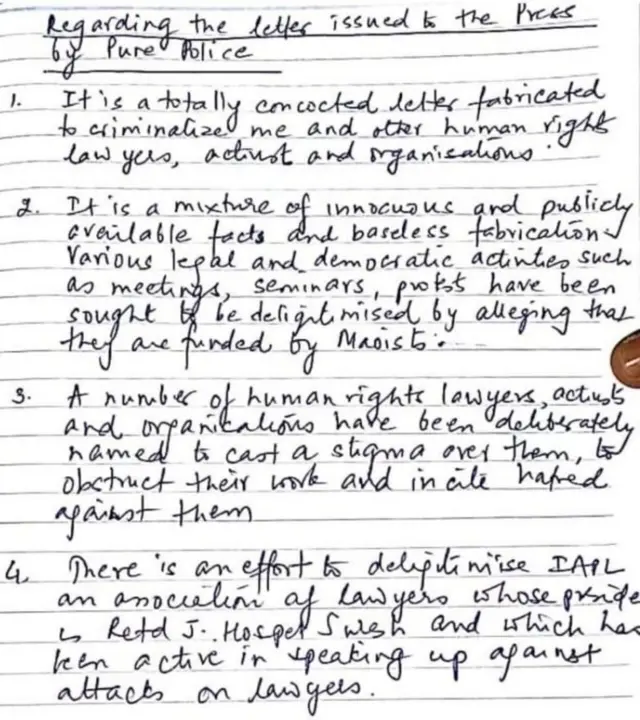 Regarding the letter issued to the Press
by Pune Police
1. It is a totally concocted letter fabricated
to criminalize me and other human right
lawyers, activist and organisations.
2. It is a mixture of innocuous and publicly
available facts and baseless fabrication.
Various legal and democratic activities such
as meetings, seminars, protest have been
sought to be deligitimised by alleging that
they are funded by Maoists.
3. A number of human rights lawyers, activists
and organisations have been deliberately
named to cast a stigma over them, to
obstruct their work and incite hatred
against them
4. There is an effort to deligitimise IAPL
an association of lawyers whose preside
is Retd J. Hosbet Suresh and which has
been active in speaking up against
attacks on lawyers.